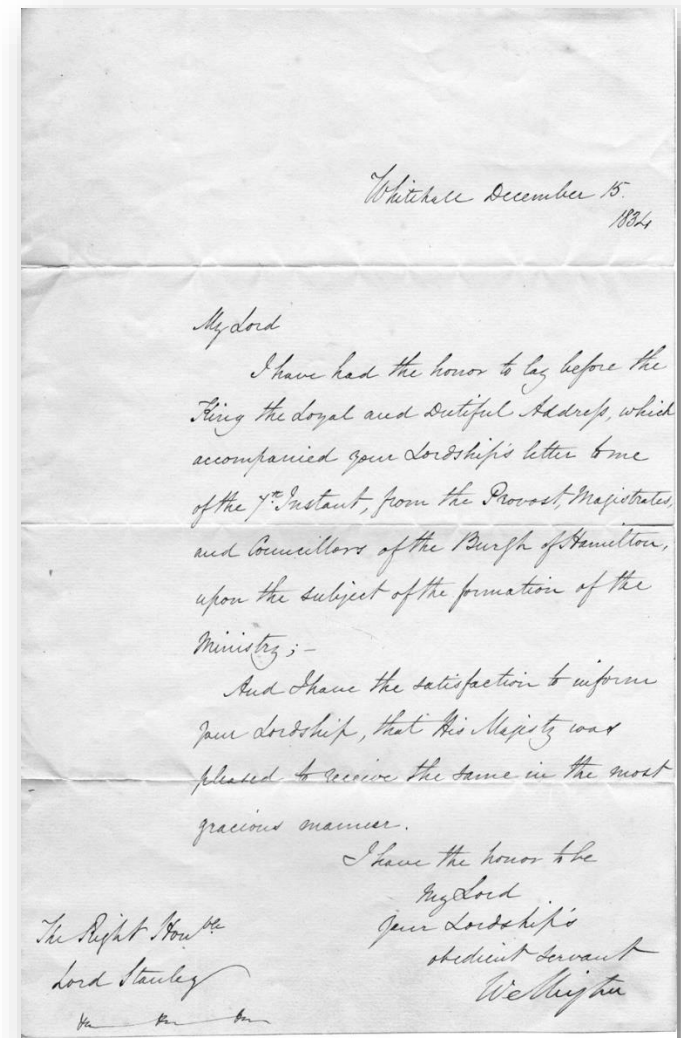 Whitehall December 15.
1834
My Lord
I have had the honor to lay before the
King the Loyal and Dutiful Address, which
accompanied your Lordship's letter to me
of the 7th Instant, from the Provost, Magistrates,
and Councillors of the Burgh of Hamilton,
upon the subject of the formation of the
Ministry; –
And I have the satisfaction to inform
your Lordship, that His Majesty was
pleased to receive the same in the most
gracious manner.
I have the honor to be
My Lord
your Lordship's
obedient servant
Wellington
The Right Honble
Lord Stanley